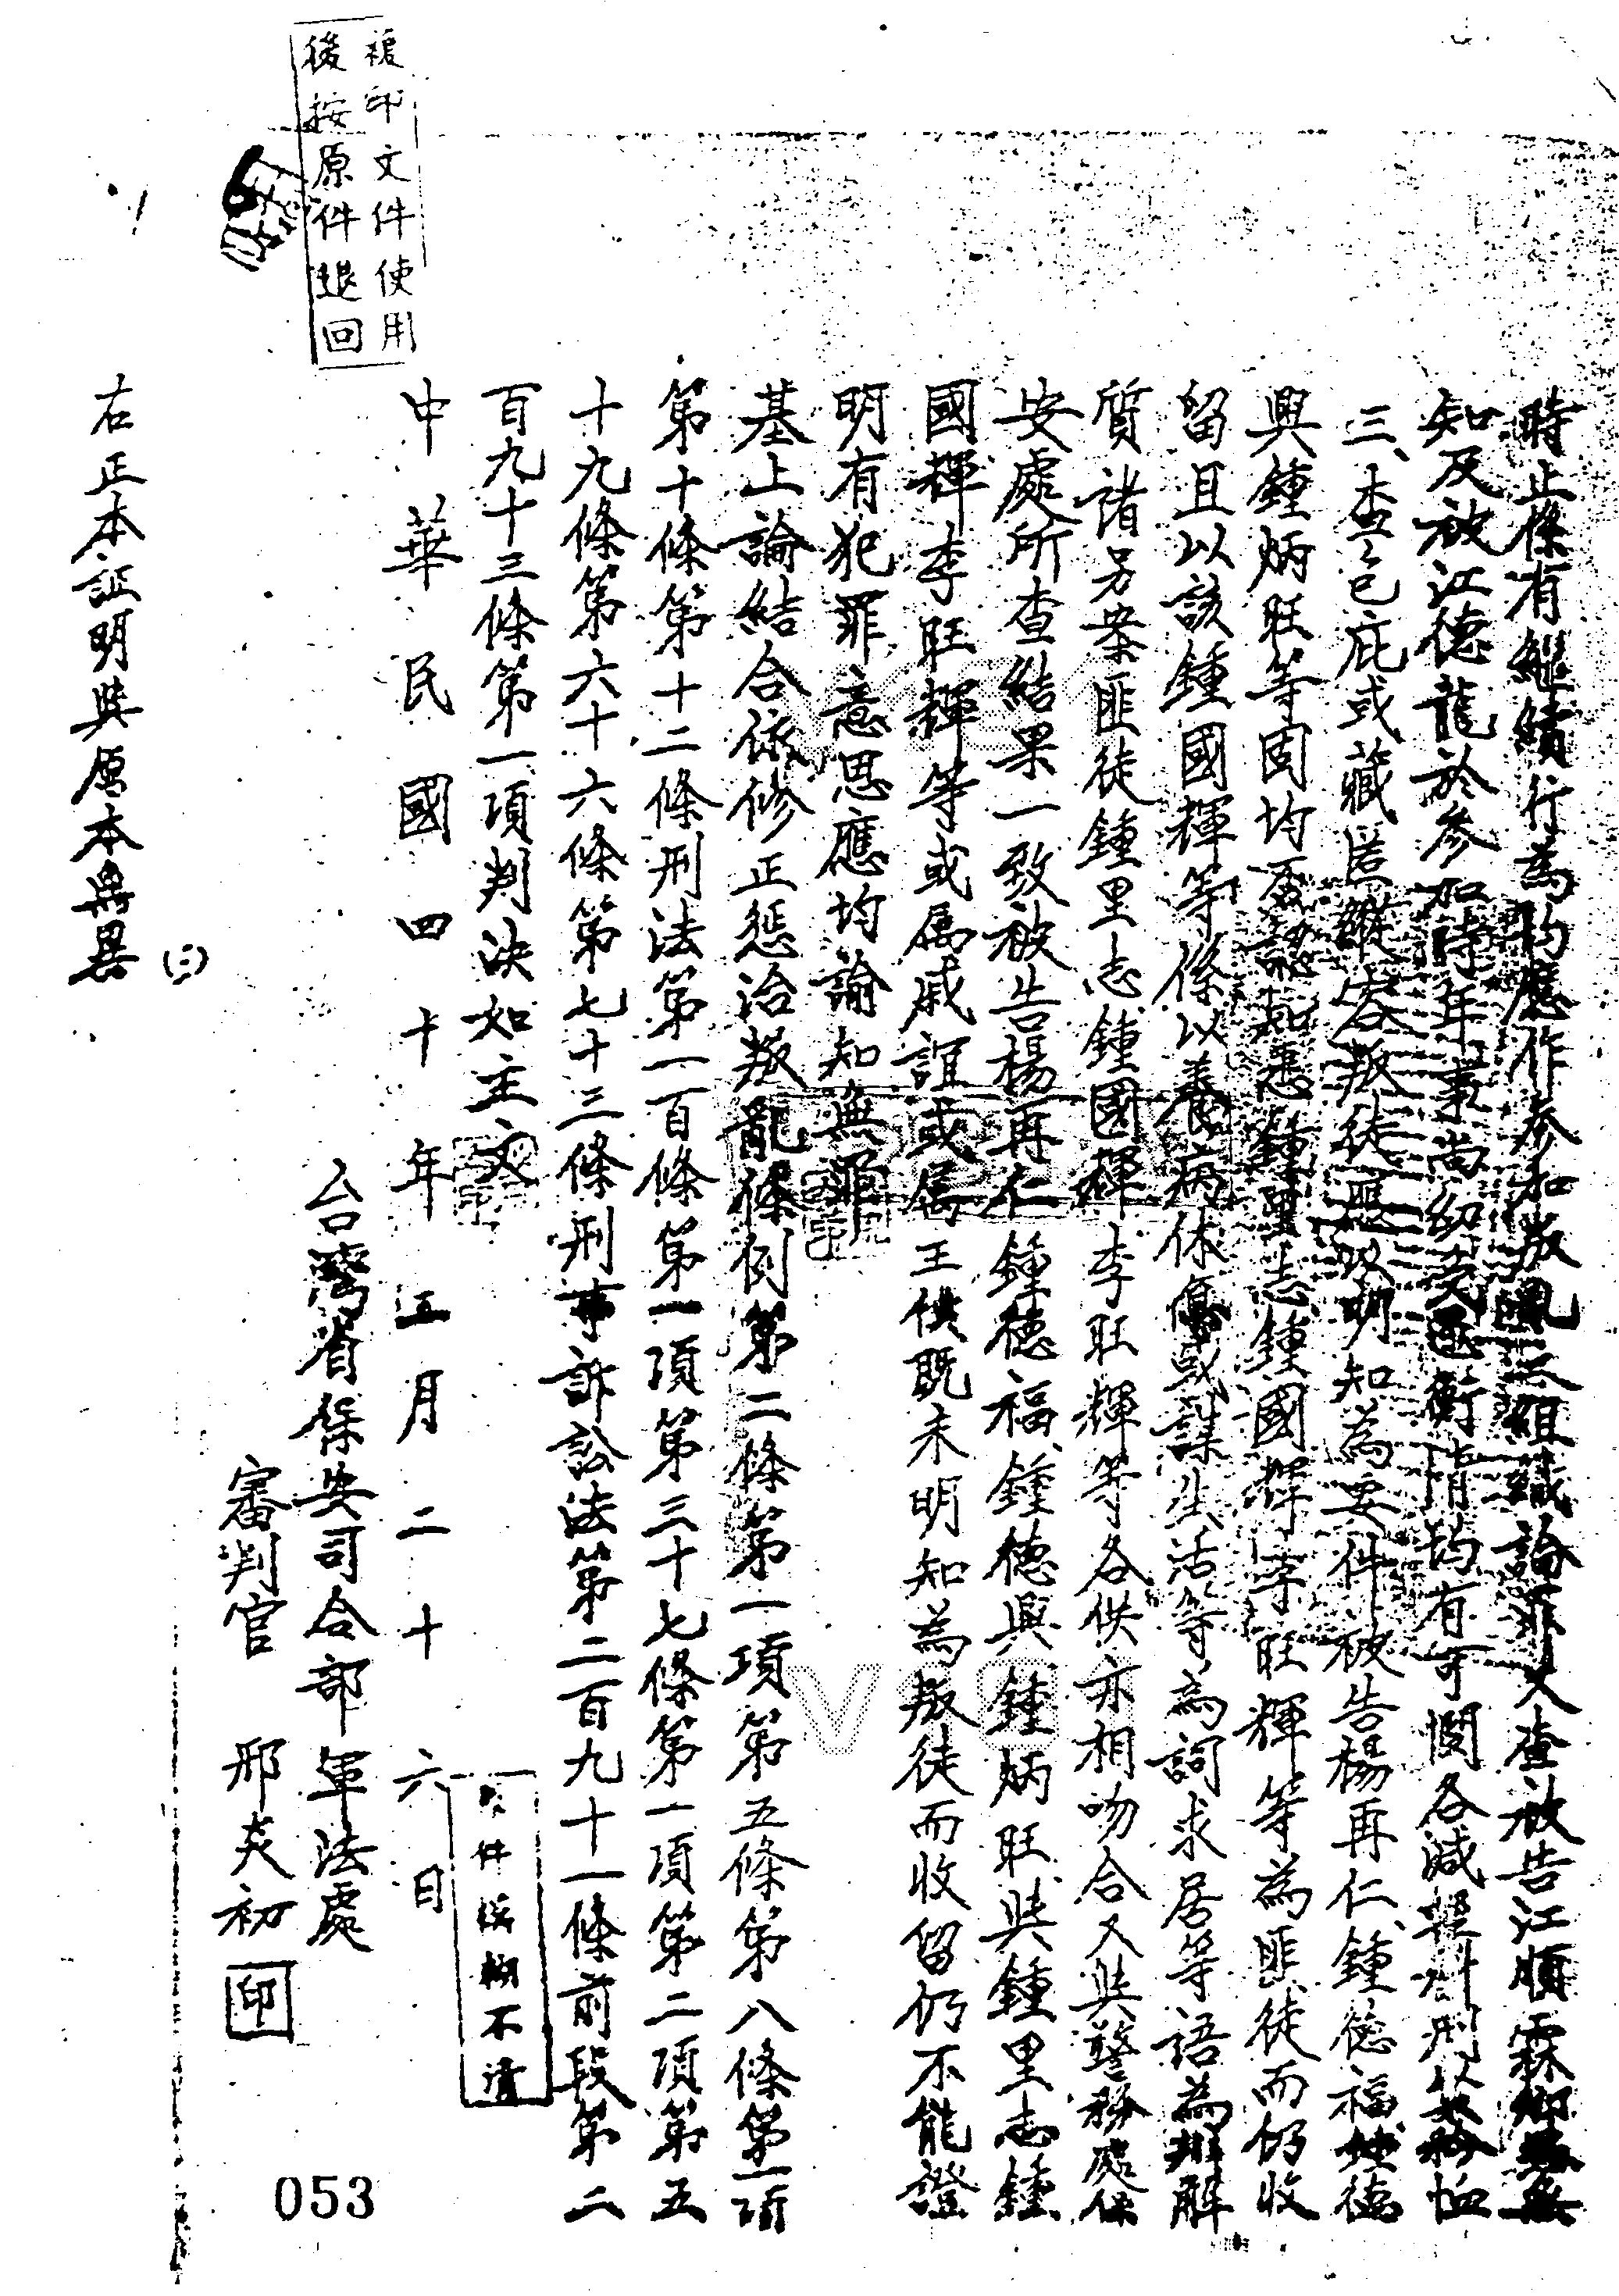 時止係有繼續行為均應作參加叛亂之組織論罪又查被告江順霖
知及被江德龍於參加時年事尚幼衡情均有可憫各減輕科刑以恤
三、查包庇或藏匿叛徒應以明知為要件被告楊再仁鍾德福鍾德
興鍾炳旺等固均否認知悉鍾里志鍾國輝李旺輝等為匪徒而仍收
留且以該鍾國輝等係以養病休傷或謀生活等為詞求居等語為辯解
質諸另案匪徒鍾里志鍾國輝李旺輝等各供亦相吻合又與警務處保
安處所查結果一致被告楊再仁鍾德福鍾德興鍾炳旺與鍾里志鍾
國輝李旺輝等或属戚誼或属王供既未明知為叛徒而收留仍不能證
明有犯罪意思應均諭知無罪
基上論結合依修正惩治叛亂條例第二條第一項第五條第八條第一項
第十條第十二條刑法第一百條第一項第三十七條第一項第二項第五
十九條第六十六條第七十三條刑事訴訟法第二百九十一條前段第二
百九十三條第一項判決如主文
中華民國四十年五月二十六日
台灣省保安司令部軍法處
審判官 邢炎初 印
右正本証明與原本無異
(三)
複印文件使用
後按原件退回
件模糊不清
053